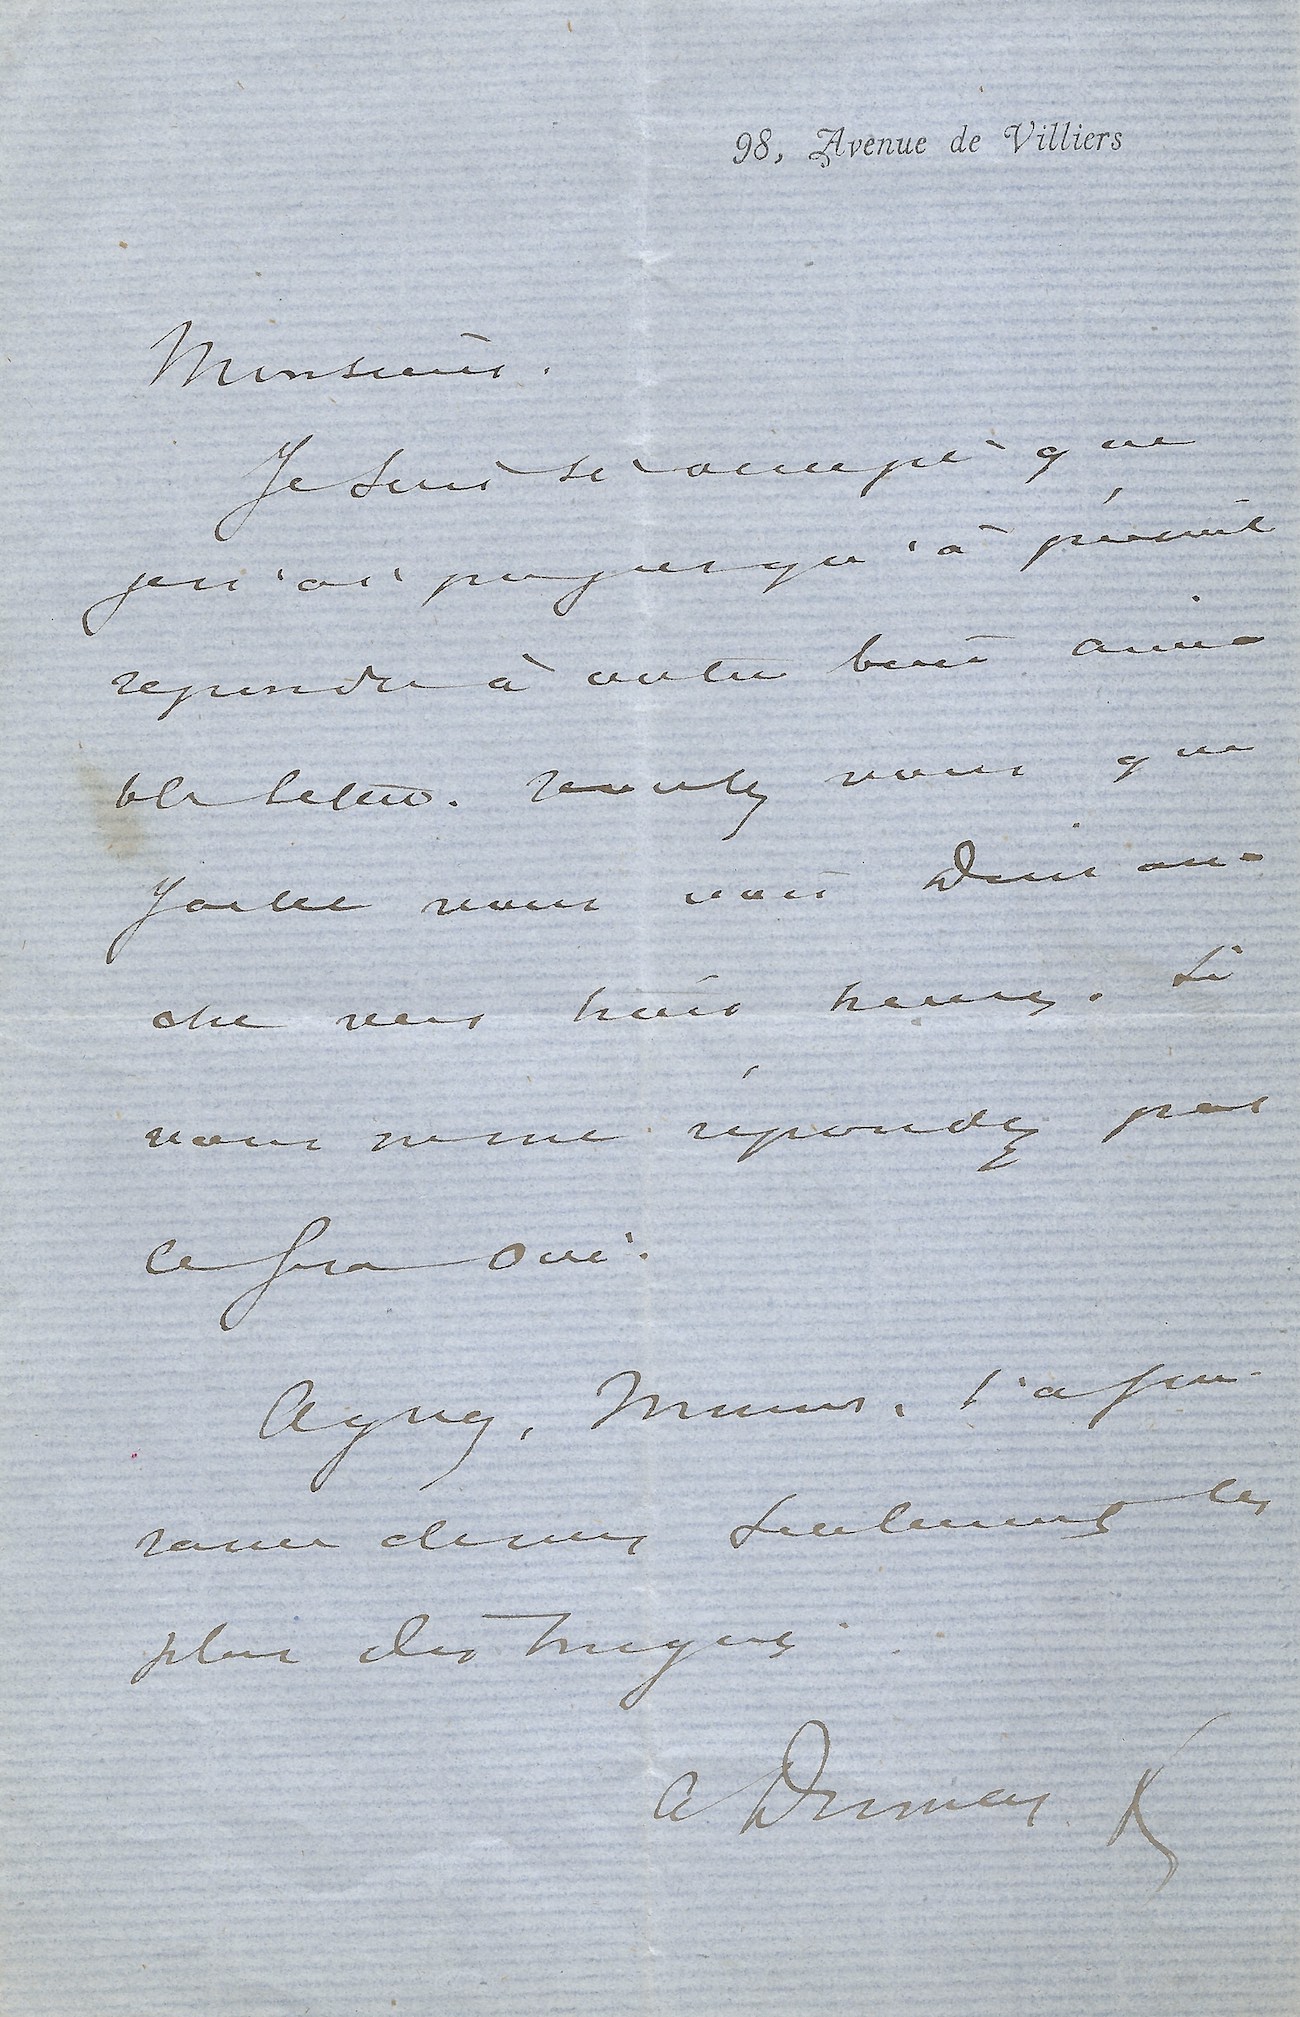 98, Avenue de Villiers
Monsieur.
Je suis si occupé que
je n'ai pu jusqu'à présent
repondre à votre bien aima
ble lettre. voulez vous que
j'aille vous voir Diman-
che vers huit heures. Si
vous ne me répondez pas
ce sera Oui.
Agréez, Monsieur, l'assu-
rance de mes sentiments les
plus distingués.
A. Dumas f